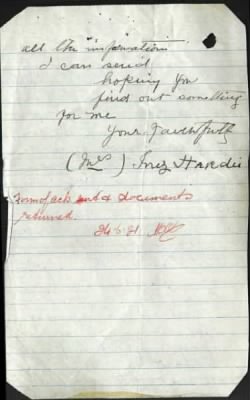 all the information
I can send
hoping you
find out something
for me
Yours Faithfully
(Mrs) Inez Hardie
Form of ack and documents
returned.
24.6.21